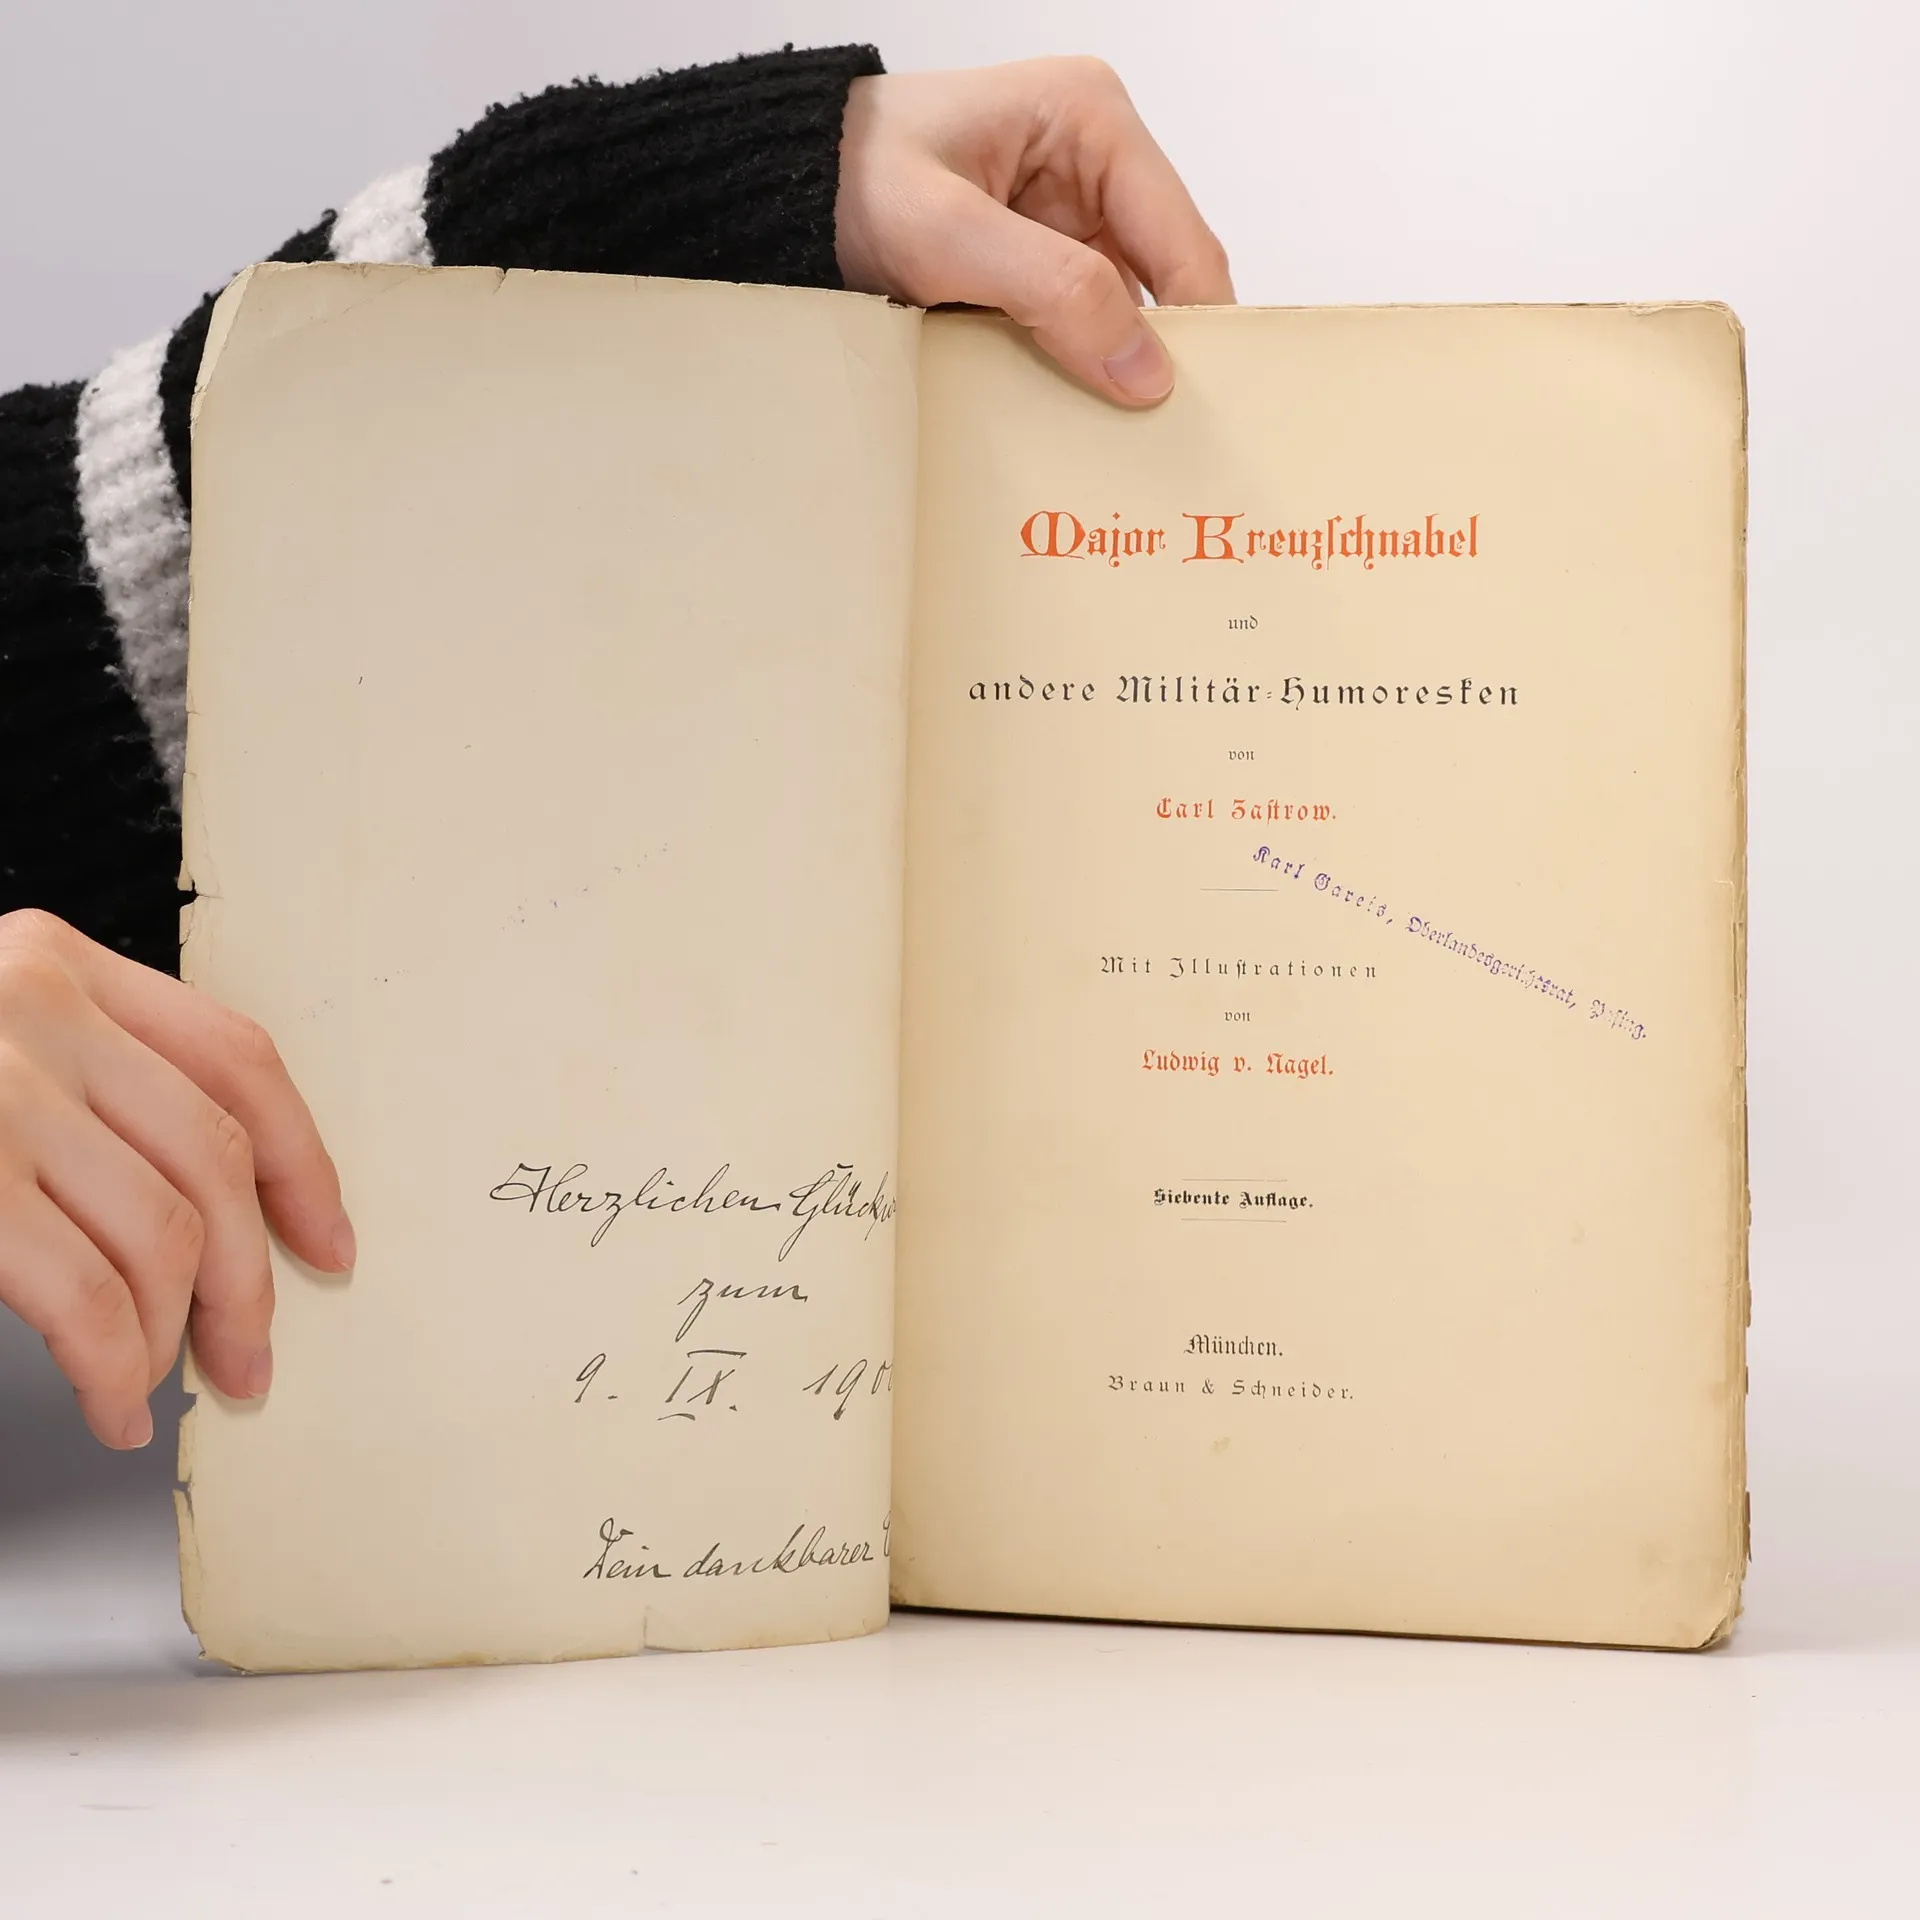 Herzlichen Glückw
zum
9. IX. 190
Dein dankbarer
Major Kreuzschnabel
und
andere Militär-Humoresken
von
Carl Zastrow.
Karl Gareis, Oberlandesgerichtsrat, Pasing.
Mit Illustrationen
von
Ludwig v. Nagel.
Siebente Auflage.
München.
Braun & Schneider.